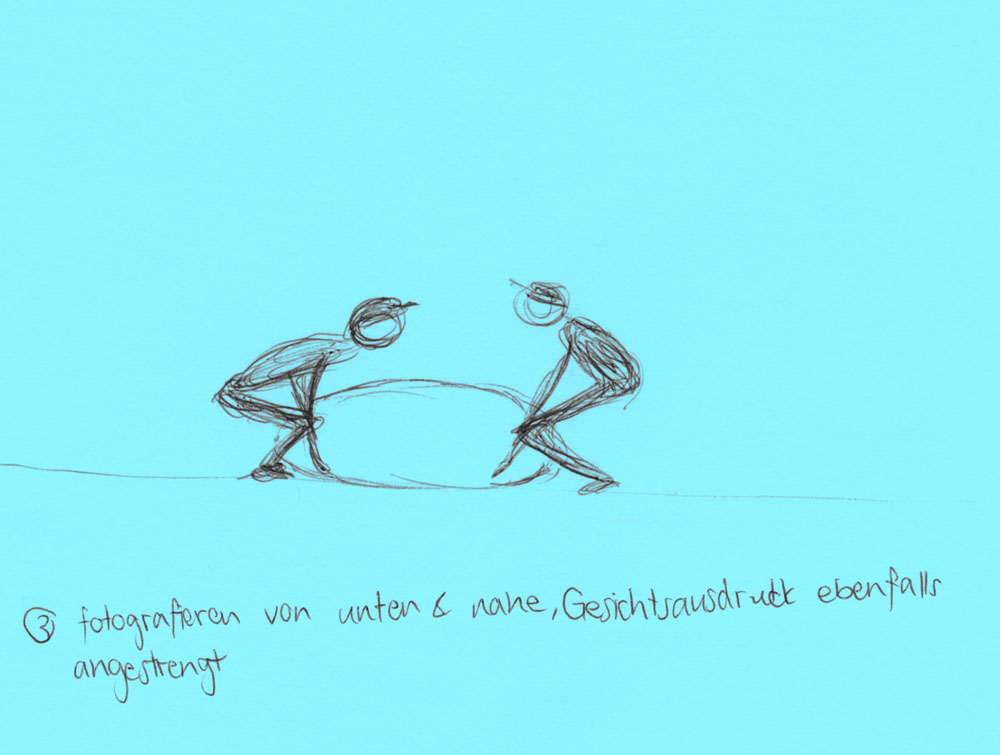 ③ fotografieren von unten & nahe, Gesichtsausdruck ebenfalls
angestrengt